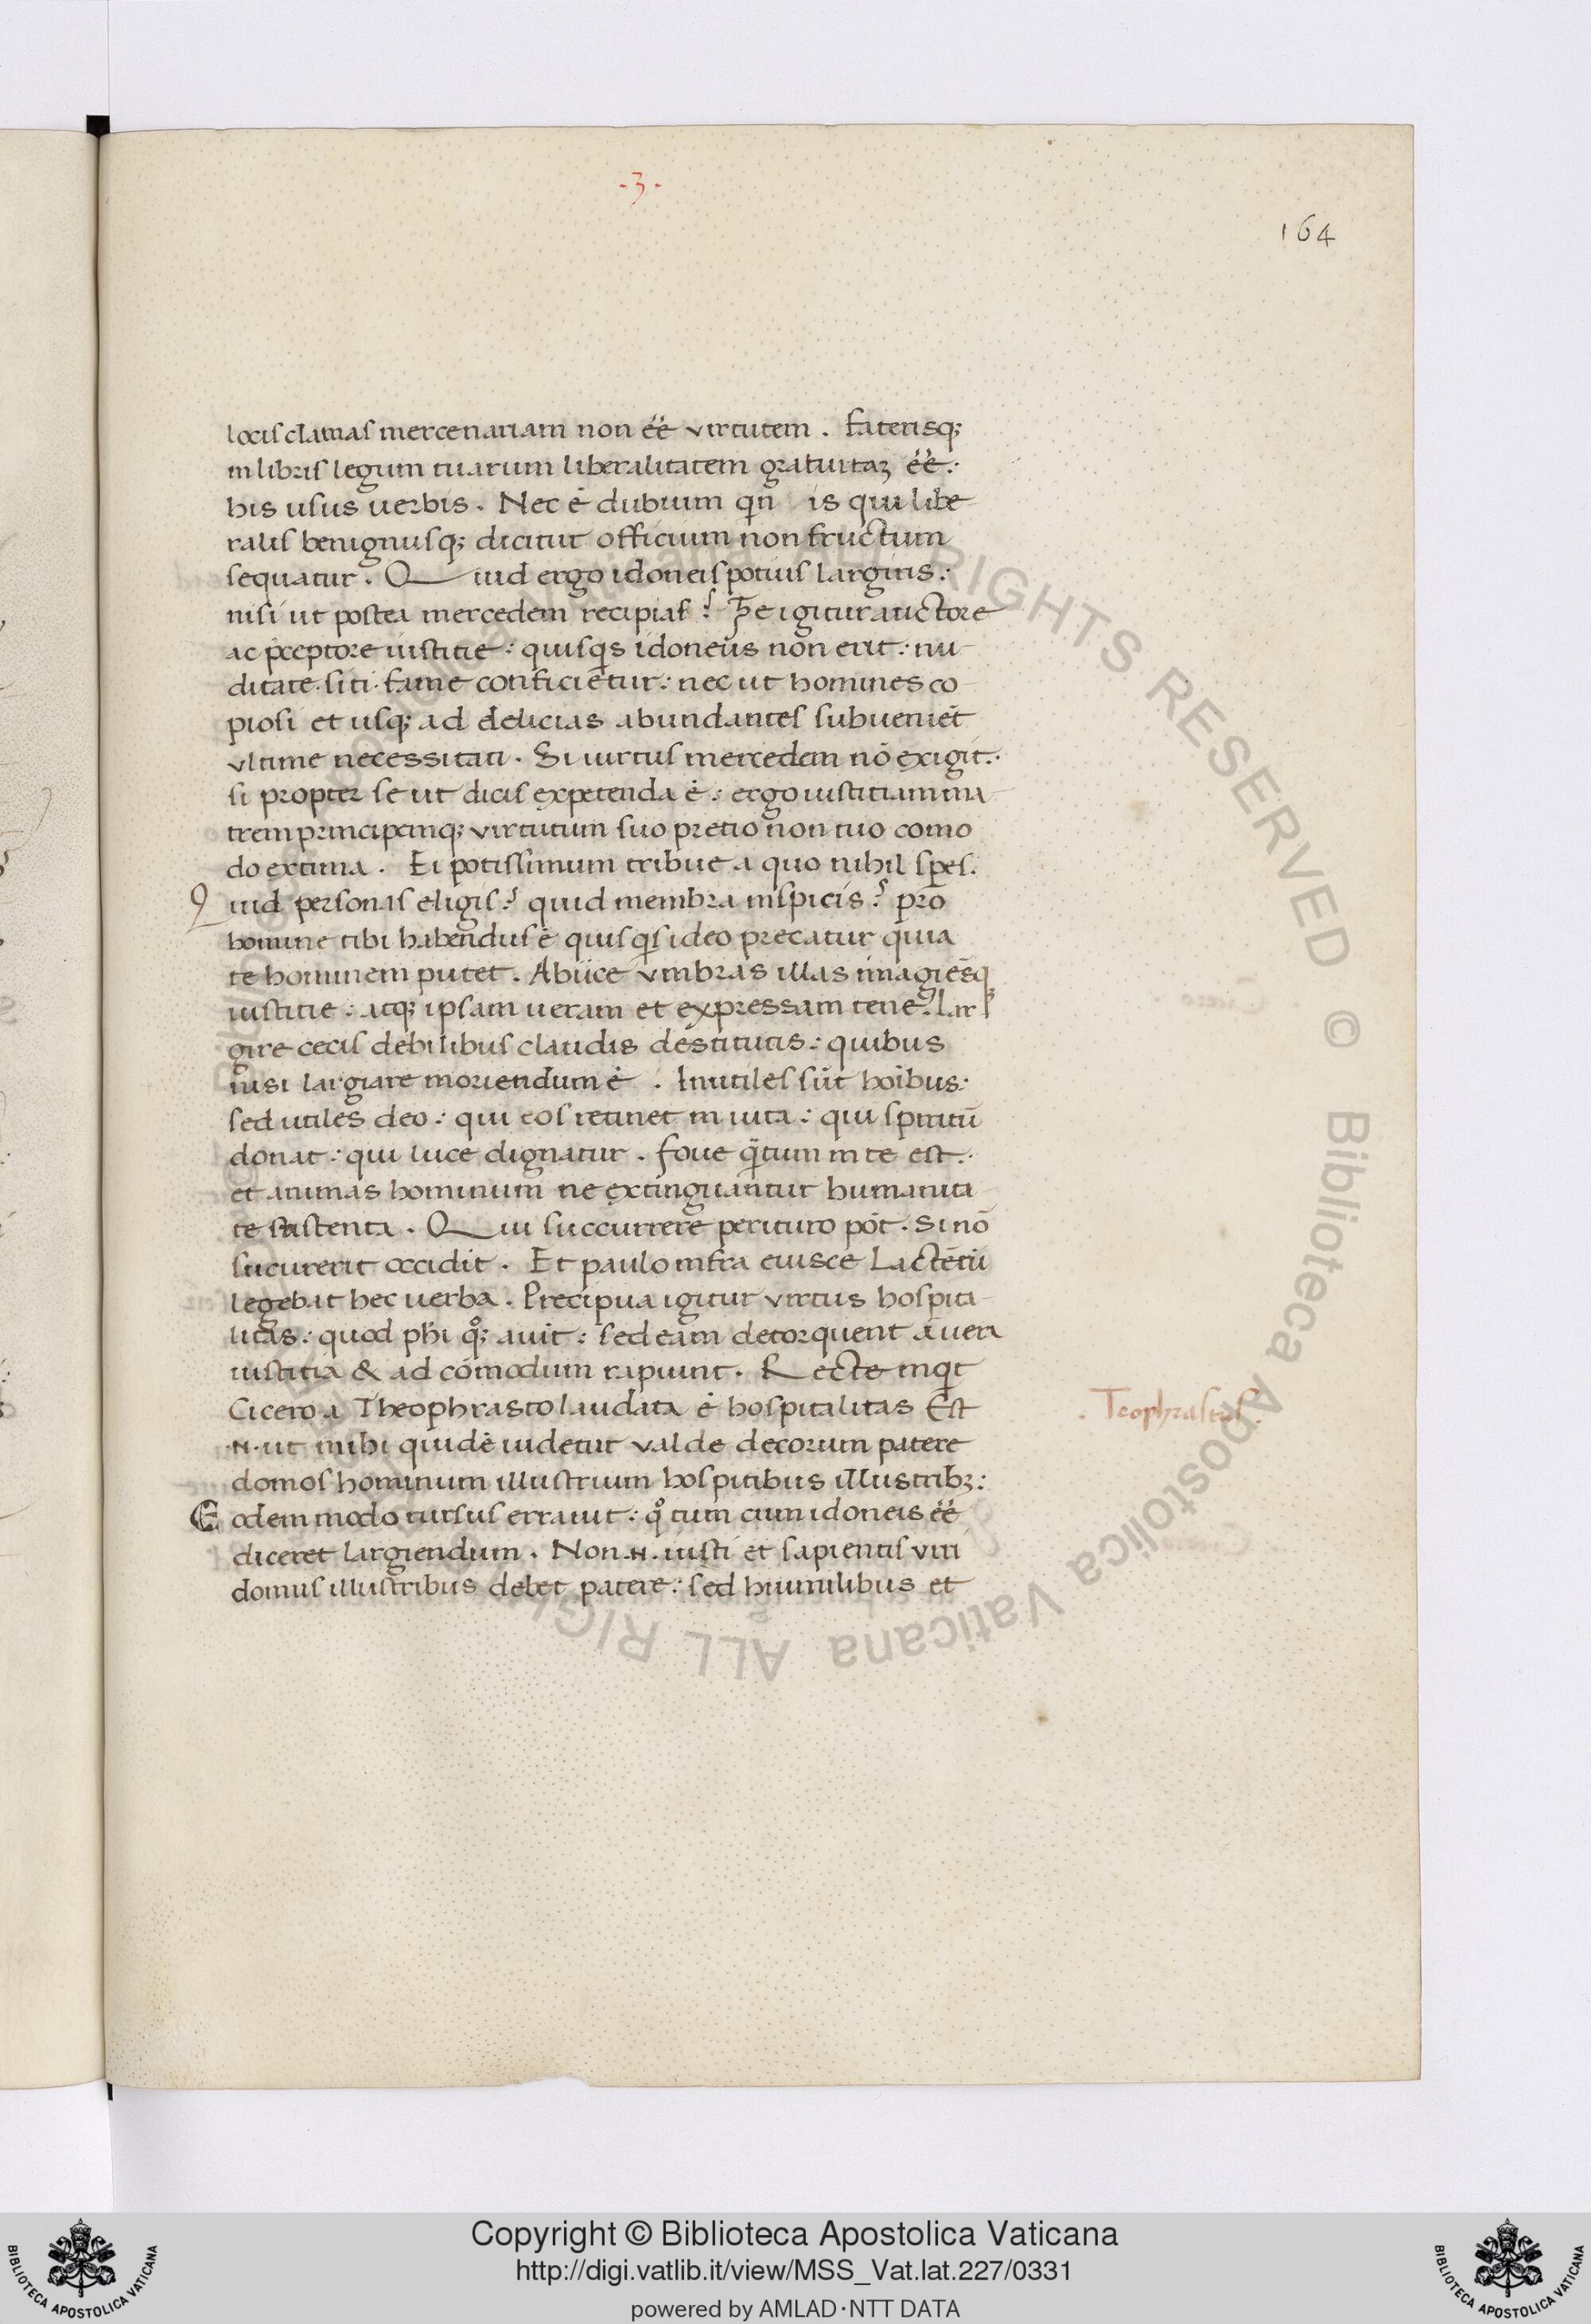 -3-
164
locis clamas mercenariam non eē virtutem. faterisq;
in libris legum tuarum liberalitatem gratuitaʒ eē:
his usus uerbis. Nec ē dubium qn̄ is qui libe
ralis benignusq; dicitur officium non fructum
sequatur. Quid ergo idoneis potius largiris:
nisi ut postea mercedem recipias? Te igitur auctore
ac p̄ceptore iustitie: quisq̄s idoneus non erit: nu
ditate. siti. fame conficietur: nec ut homines co
piosi et usq; ad delicias abundantes subueniēt
vltime necessitati. Si uirtus mercedem nō exigit:
si propter se ut dicis expetenda ē: ergo iustitiam ma
trem principemq; virtutum suo pretio non tuo como
do extima. Ei potissimum tribue a quo nihil spes.
Quid personas eligis? quid membra inspicis? pro
homine tibi habendus ē quisq̄s ideo precatur quia
te hominem putet. Abiice vmbras illas imagiesq̄
iustitie: atq; ipsam ueram et expressam tene. Lar
gire cecis debilibus claudis destitutis: quibus
nisi largiare moriendum ē. Inutiles sūt hoībus:
sed utiles deo: qui eos retinet in uita: qui spiritū
donat: qui luce dignatur. foue q̄tum in te est:
et animas hominum ne extinguantur humanita
te sustenta. Qui succurrere perituro pōt. Si nō
sucurerit occidit. Et paulo infra eiusce Lactētiī
legebat hec uerba. Precipua igitur virtus hospita
litas: quod phī qꝫ aiuit: sed eam detorquent a uera
iustitia & ad cōmodum rapiunt. Recte inqt
Cicero a Theophrasto laudata ē hospitalitas Est
.n. ut mihi quidē uidetur valde decorum patere
domos hominum illustrium hospitibus illustribꝫ:
. Teophrastus.
Eodem modo rursus errauit: qº tum cum idoneis eē
diceret largiendum. Non .n. iusti et sapientis viri
domus illustribus debet patere: sed humilibus et
ALL RIGHTS RESERVED © Biblioteca Apostolica Vaticana ALL RIGHTS
Copyright © Biblioteca Apostolica Vaticana
http://digi.vatlib.it/view/MSS_Vat.lat.227/0331
powered by AMLAD·NTT DATA
BIBLIOTECA APOSTOLICA VATICANA
BIBLIOTECA APOSTOLICA VATICANA